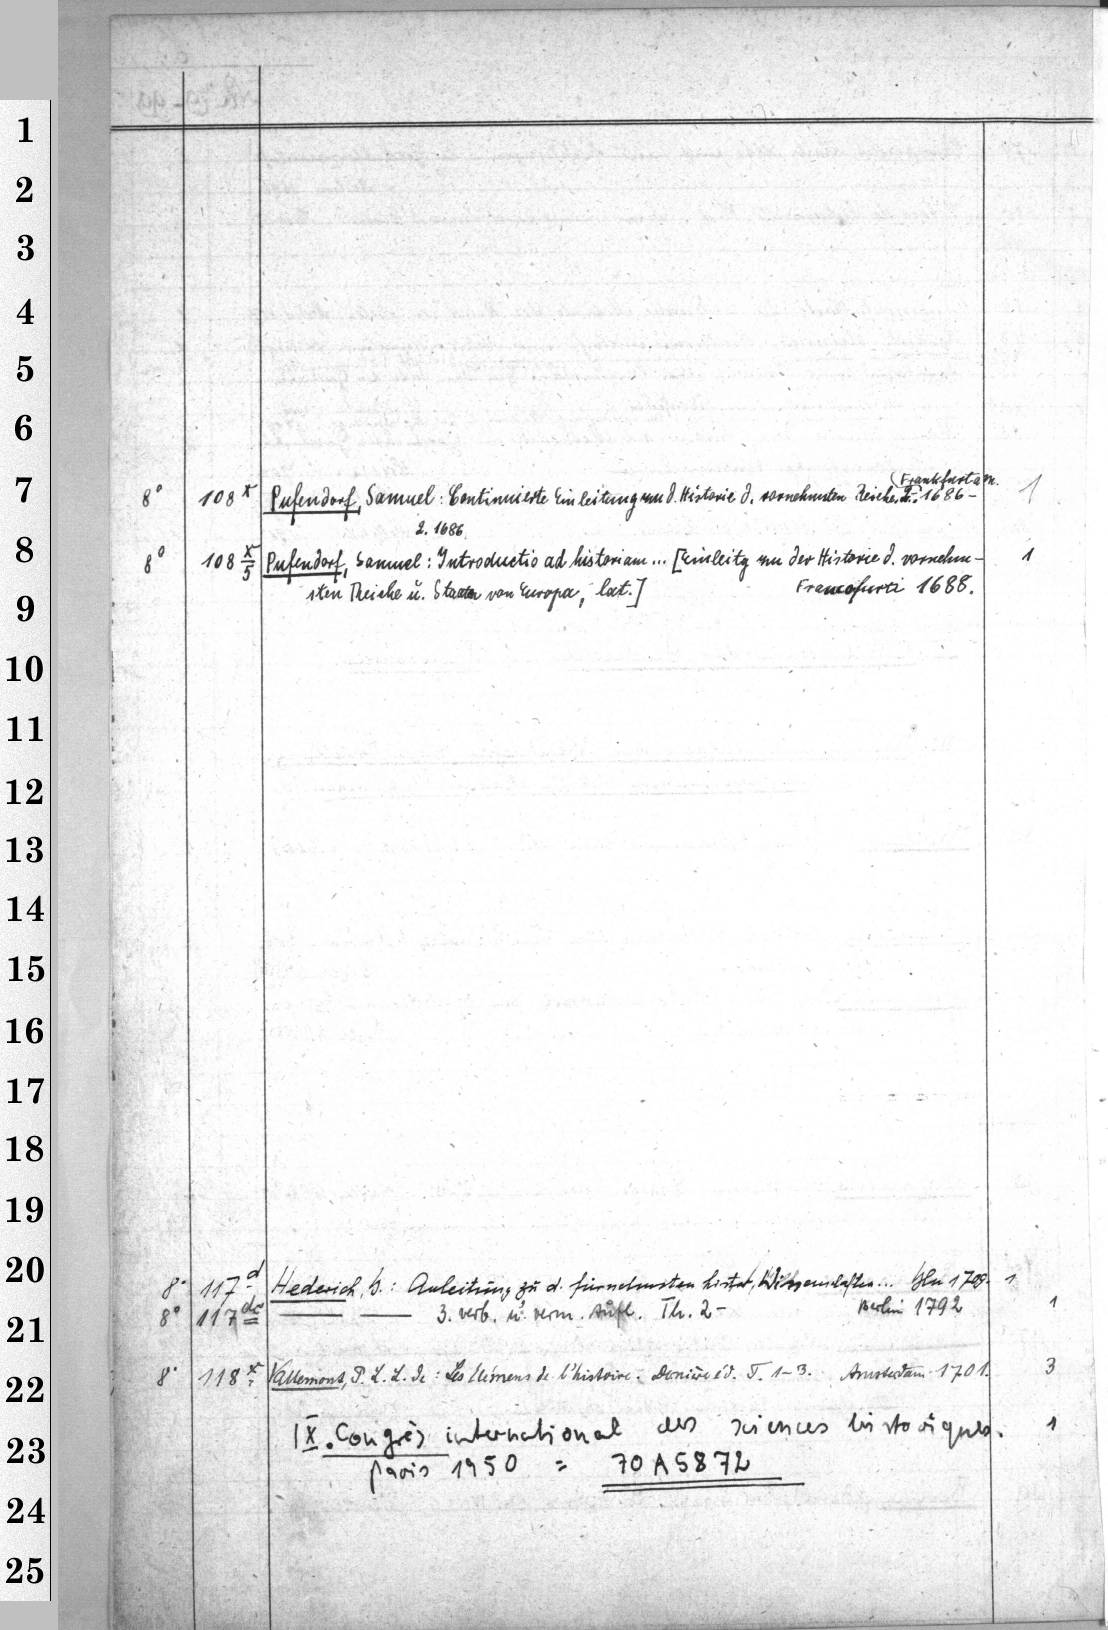 1
2
3
4
5
6
(Frankfurt a. M.
7 8° 108 x Pufendorf, Samuel: Continuierte Einleitung zu d. Historie d. vornehmsten Reiche, 2. 1686– 1
2. 1686
8 8° 108 x/5 Pufendorf, Samuel: Introductio ad historiam... [Einleitg zu der Historie d. vornehm- 1
9 sten Reiche u. Staaten von Europa, lat.] Francofurti 1688.
10
11
12
13
14
15
16
17
18
19
20 8° 117 d Hederich, B.: Anleitung zu d. fürnehmsten histor. Wissenschaften... Bln 1709. 1
21 8° 117 dc —— —— 3. verb. u. verm. Aufl. Th. 2– Berlin 1792 1
22 8° 118 x Vallemont, P. L. L. de: Les Élémens de l'histoire. Dernière éd. T. 1–3. Amsterdam 1701. 3
23 IX. Congrès international des sciences historiques. 1
Paris 1950 = 70 A 5872
24
25